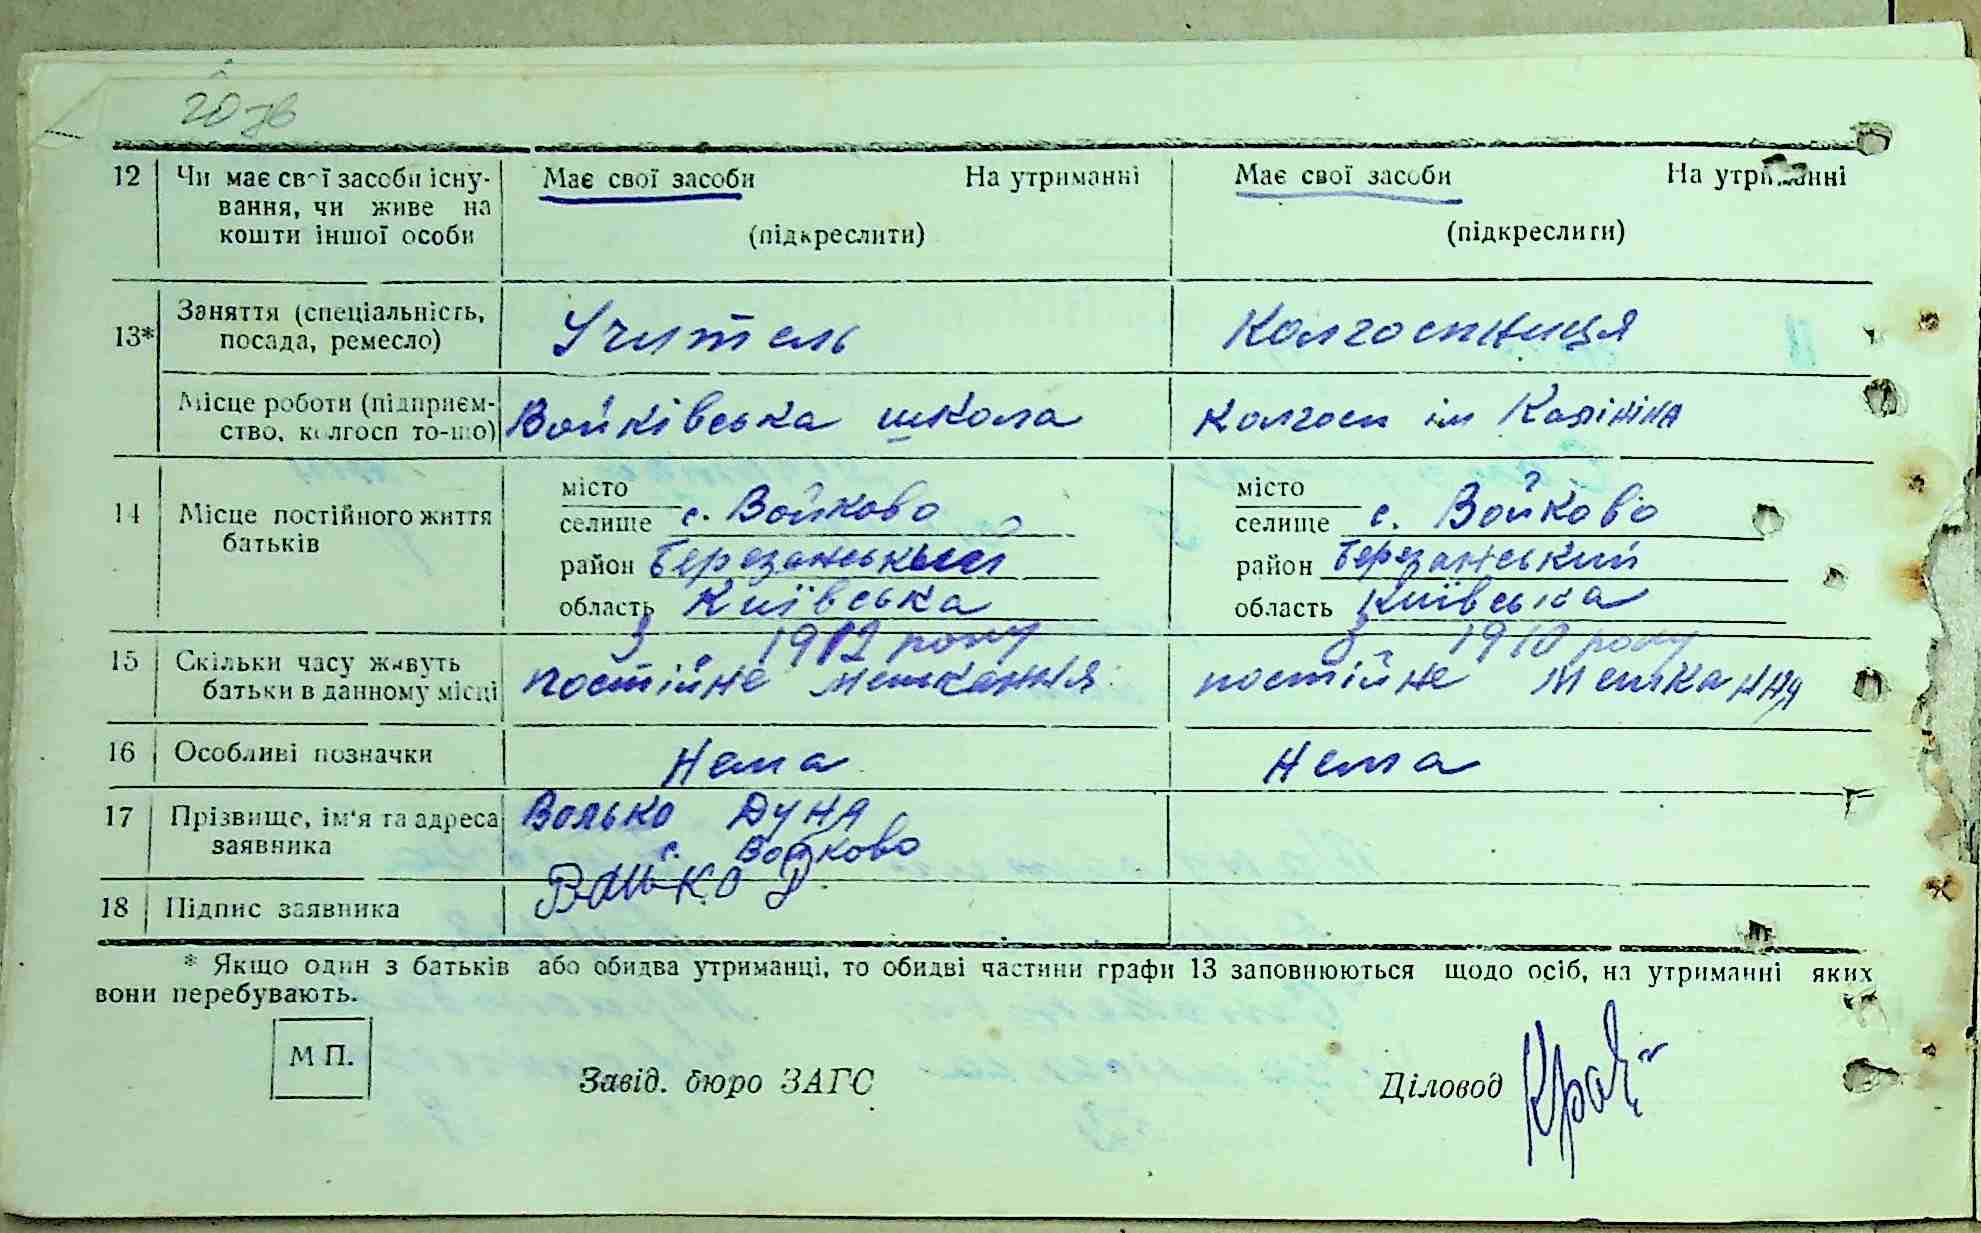 12 Чи має свої засоби існу- Має свої засоби На утриманні Має свої засоби На утриманні
вання, чи живе на
кошти іншої особи (підкреслити) (підкреслити)
13* Заняття (спеціальність,
посада, ремесло) Учитель Колгоспниця
Місце роботи (підприєм-
ство, колгосп то-що) Войківська школа Колгосп ім Калініна
14 Місце постійного життя
батьків
місто
селище с. Войково
район Березанський
область Київська
місто
селище с. Войково
район Березанський
область Київська
15 Скільки часу живуть
батьки в данному місці
З 1912 року
постійне мешкання
З 1910 року
постійне мешкання
16 Особливі позначки Нема Нема
17 Прізвище, ім'я та адреса
заявника
Валько Дуня
с. Войково
18 Підпис заявника Валько Д
* Якщо один з батьків або обидва утриманці, то обидві частини графи 13 заповнюються щодо осіб, на утриманні яких
вони перебувають.
М П.
Завід. бюро ЗАГС Діловод